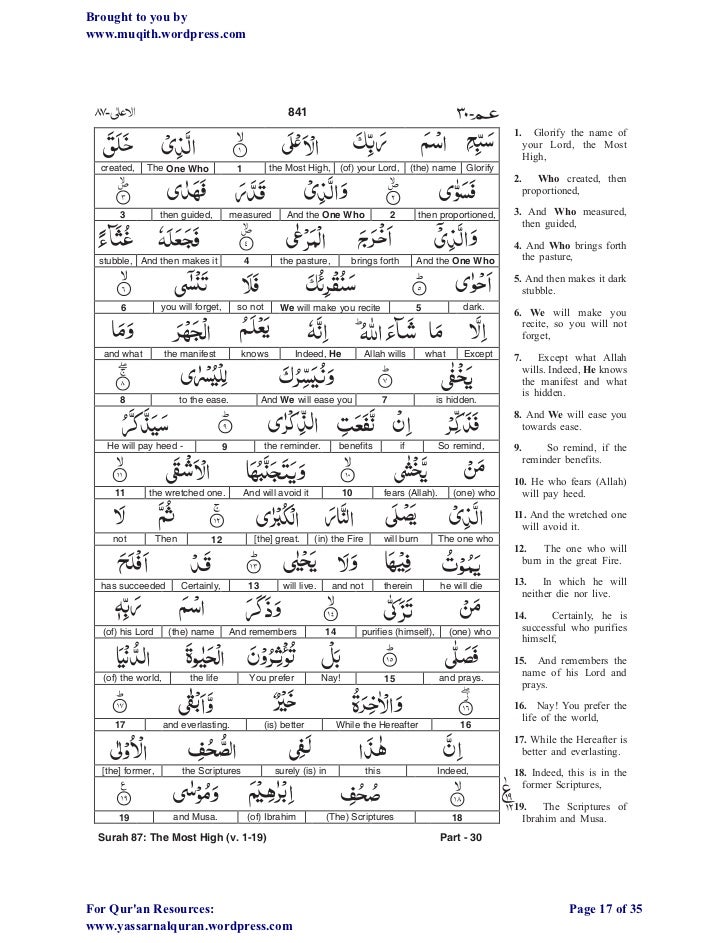 Brought to you by
www.muqith.wordpress.com
الاعلى-٨٧ 841 عـم-٣٠
سَبِّحِ اسْمَ رَبِّكَ الْاَعْلَى ۙ﴿۱﴾ الَّذِیْ خَلَقَ
created, The One Who 1 the Most High, (of) your Lord, (the) name Glorify
فَسَوّٰى ۪ۙ﴿۲﴾ وَالَّذِیْ قَدَّرَ فَهَدٰى ۪ۙ﴿۳﴾
3 then guided, measured And the One Who 2 then proportioned,
وَالَّذِیْۤ اَخْرَجَ الْمَرْعٰى ۪ۙ﴿۴﴾ فَجَعَلَهٗ غُثَآءً
stubble, And then makes it 4 the pasture, brings forth And the One Who
اَحْوٰى ؕ﴿۵﴾ سَنُقْرِئُكَ فَلَا تَنْسٰۤى ۙ﴿۶﴾
6 you will forget, so not We will make you recite 5 dark.
اِلَّا مَا شَآءَ اللّٰهُ ؕ اِنَّهٗ یَعْلَمُ الْجَهْرَ وَمَا
and what the manifest knows Indeed, He Allah wills what Except
یَخْفٰى ؕ﴿۷﴾ وَنُیَسِّرُكَ لِلْیُسْرٰى ۚۖ﴿۸﴾
8 to the ease. And We will ease you 7 is hidden.
فَذَكِّرْ اِنْ نَّفَعَتِ الذِّكْرٰى ؕ﴿۹﴾ سَیَذَّكَّرُ
He will pay heed - 9 the reminder. benefits if So remind,
مَنْ یَّخْشٰى ۙ﴿۱۰﴾ وَیَتَجَنَّبُهَا الْاَشْقَى ۙ﴿۱۱﴾
11 the wretched one. And will avoid it 10 fears (Allah). (one) who
الَّذِیْ یَصْلَى النَّارَ الْكُبْرٰى ۚ﴿۱۲﴾ ثُمَّ لَا
not Then 12 [the] great. (in) the Fire will burn The one who
یَمُوْتُ فِیْهَا وَلَا یَحْیٰى ؕ﴿۱۳﴾ قَدْ اَفْلَحَ
has succeeded Certainly, 13 will live. and not therein he will die
مَنْ تَزَكّٰى ۙ﴿۱۴﴾ وَذَكَرَ اسْمَ رَبِّهٖ
(of) his Lord (the) name And remembers 14 purifies (himself), (one) who
فَصَلّٰى ؕ﴿۱۵﴾ بَلْ تُؤْثِرُوْنَ الْحَیٰوةَ الدُّنْیَا
(of) the world, the life You prefer Nay! 15 and prays.
﴿۱۶﴾ وَالْاٰخِرَةُ خَیْرٌ وَّاَبْقٰى ؕ﴿۱۷﴾
17 and everlasting. (is) better While the Hereafter 16
اِنَّ هٰذَا لَفِی الصُّحُفِ الْاُوْلٰى
[the] former, the Scriptures surely (is) in this Indeed,
ۙ﴿۱۸﴾ صُحُفِ اِبْرٰهِیْمَ وَمُوْسٰى ﴿۱۹﴾
19 and Musa. (of) Ibrahim (The) Scriptures 18
Surah 87: The Most High (v. 1-19) Part - 30
1. Glorify the name of
your Lord, the Most
High,
2. Who created, then
proportioned,
3. And Who measured,
then guided,
4. And Who brings forth
the pasture,
5. And then makes it dark
stubble.
6. We will make you
recite, so you will not
forget,
7. Except what Allah
wills. Indeed, He knows
the manifest and what
is hidden.
8. And We will ease you
towards ease.
9. So remind, if the
reminder benefits.
10. He who fears (Allah)
will pay heed.
11. And the wretched one
will avoid it.
12. The one who will
burn in the great Fire.
13. In which he will
neither die nor live.
14. Certainly, he is
successful who purifies
himself,
15. And remembers the
name of his Lord and
prays.
16. Nay! You prefer the
life of the world,
17. While the Hereafter is
better and everlasting.
18. Indeed, this is in the
former Scriptures,
19. The Scriptures of
Ibrahim and Musa.
For Qur'an Resources: Page 17 of 35
www.yassarnalquran.wordpress.com